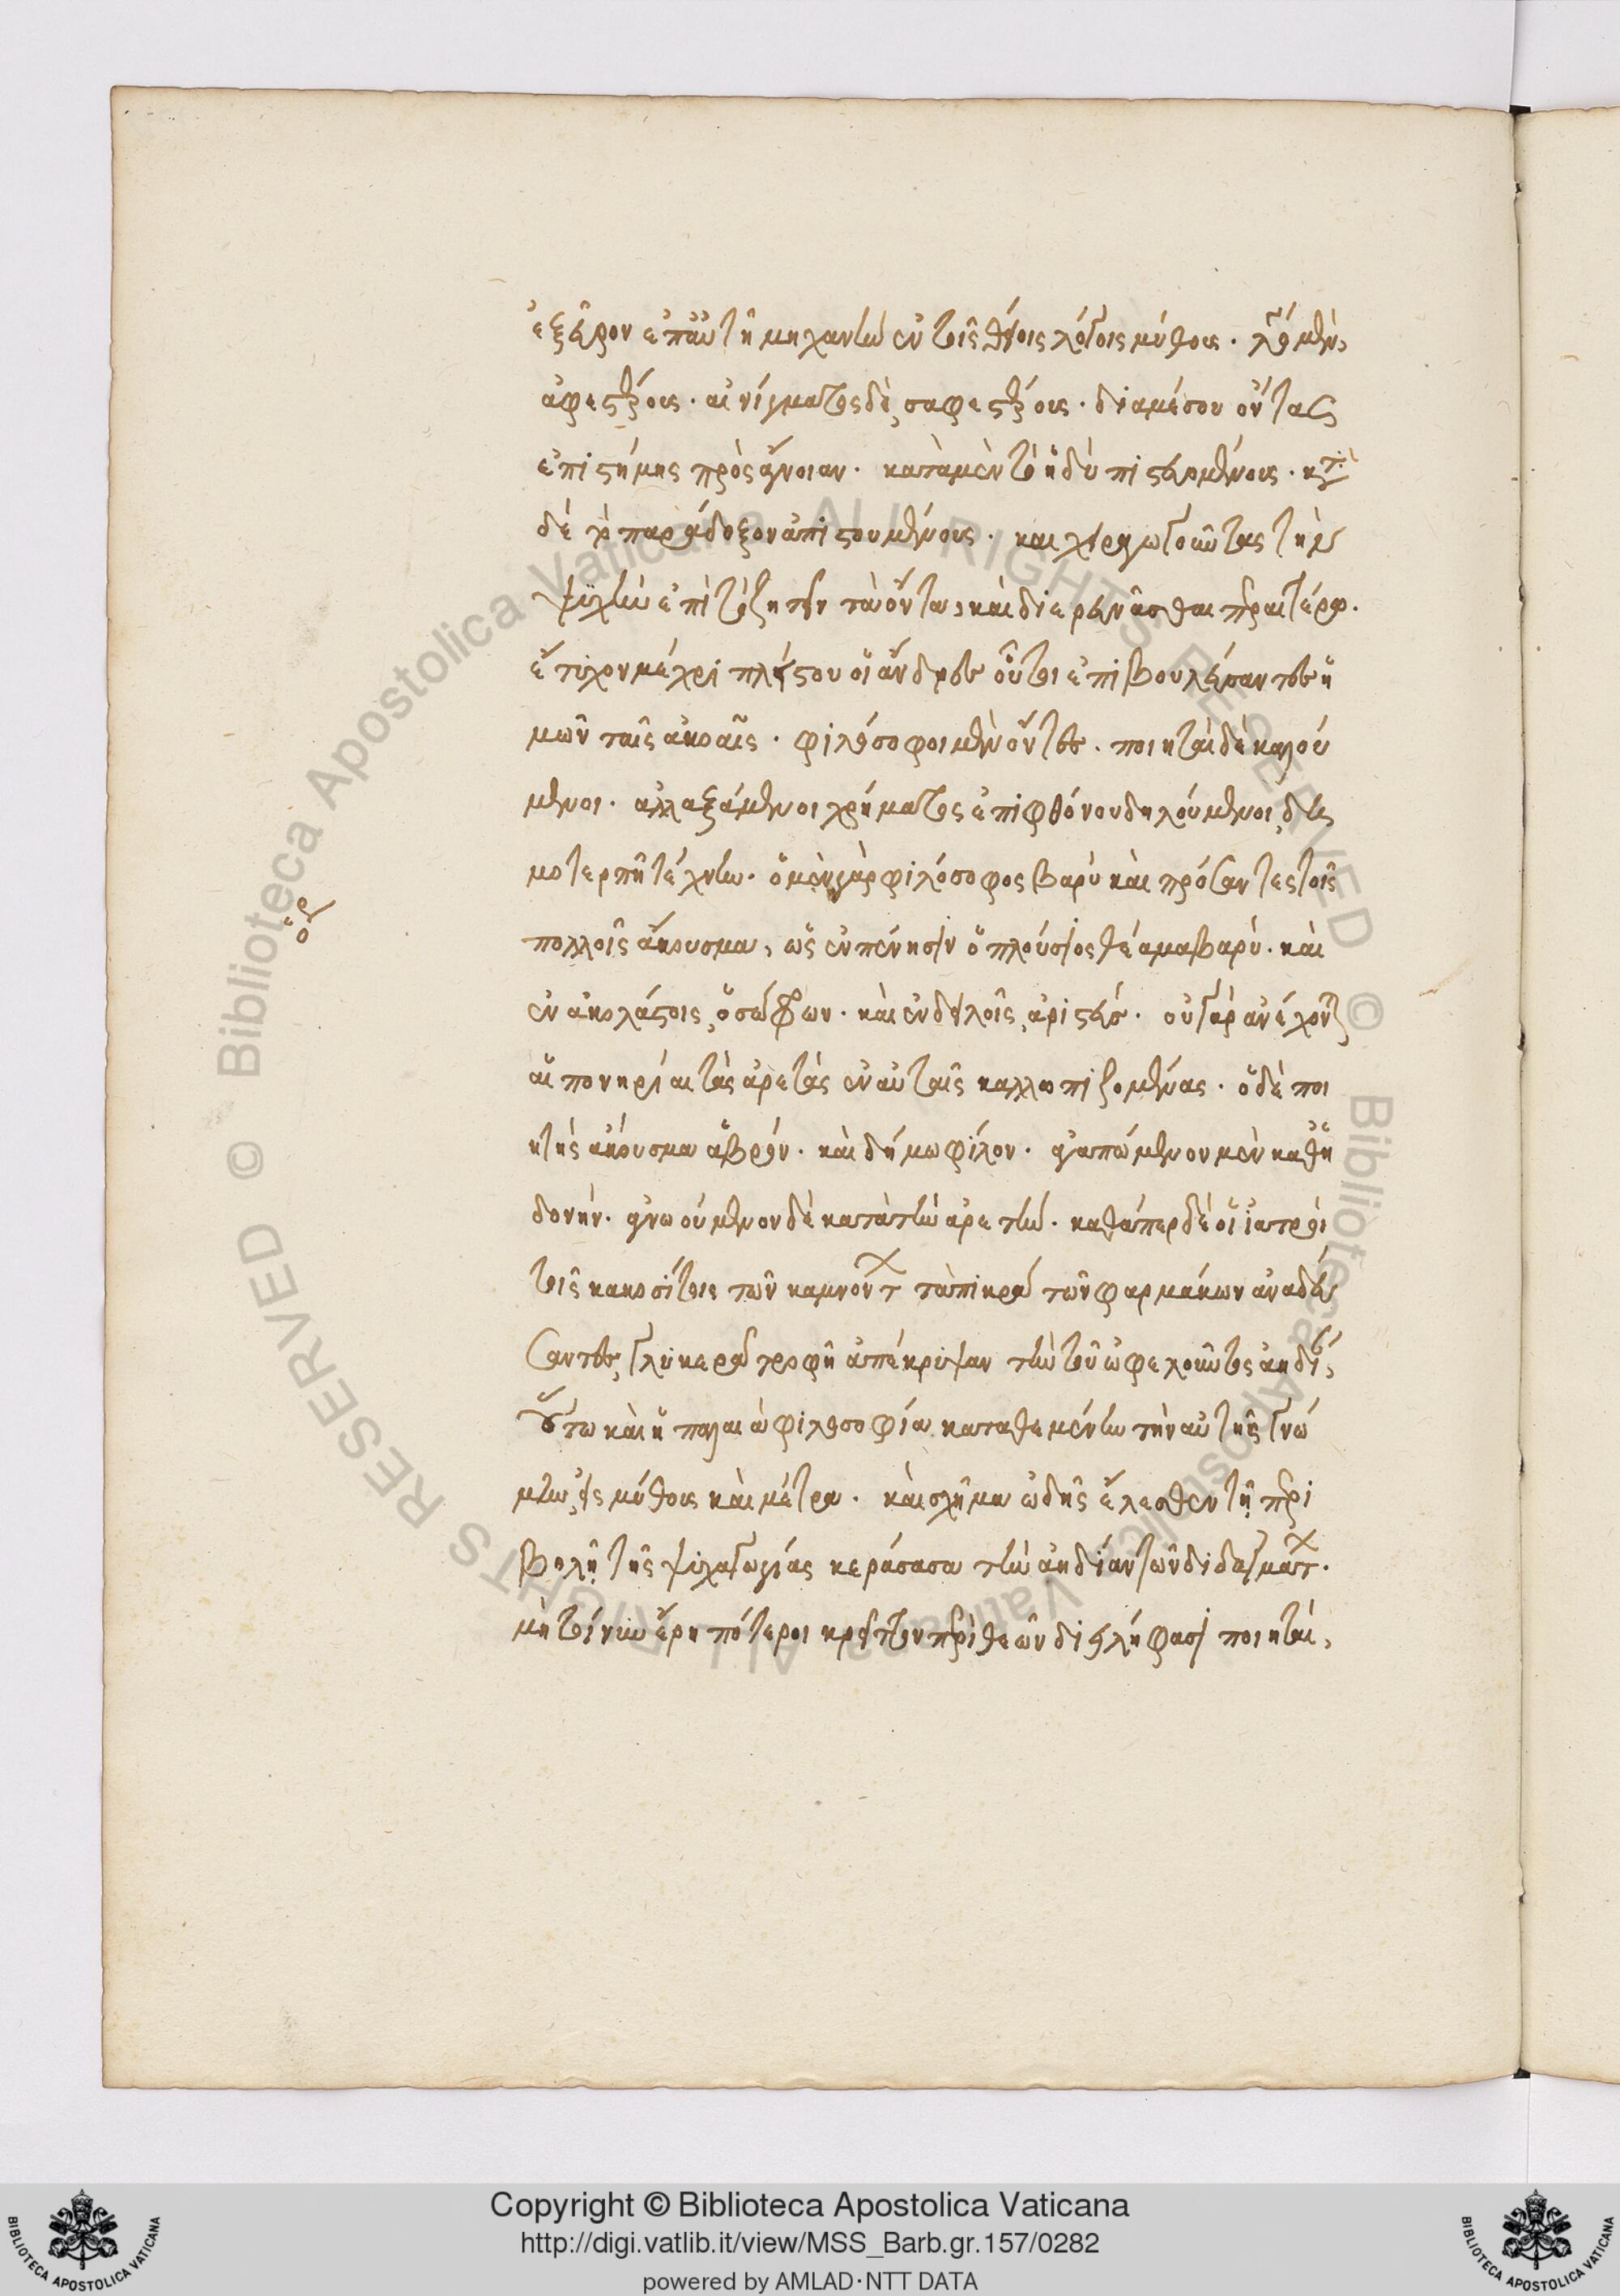 ἐξεῦρον ἐπ' αὐτῇ μηχανὴν ἐν τοῖς θείοις λόγοις μύθους. λόγου μὲν
ἀφεστέρους. αἰνίγματος δὲ σαφεστέρους. διαμέσου ὄντας
ἐπιστήμης πρὸς ἄγνοιαν. κατὰ μὲν τὸ ἡδὺ πιστευομένους. κατὰ
δὲ τὸ παράδοξον ἀπιστουμένους. καὶ χειραγωγοῦντας τὴν
ψυχὴν ἐπὶ τὸ ζητεῖν τὰ ὄντα, καὶ διερευνᾶσθαι περαιτέρω.
ἔτυχον μέχρι πλείστου οἱ ἄνδρες οὗτοι ἐπιβουλεύσαντες ἡ
μῶν ταῖς ἀκοαῖς. φιλόσοφοι μὲν ὄντες. ποιηταὶ δὲ καλού
μενοι. ἀλλαξάμενοι χρήματος ἐπιφθόνου δηλούμενοι, δει
μοτερπῆ τέχνην. ὁ μὲν γὰρ φιλόσοφος βαρὺ καὶ πρόσαντες τοῖς
πολλοῖς ἄκουσμα, ὡς ἐν πένησιν ὁ πλούσιος θέαμα βαρύ. καὶ
ἐν ἀκολάστοις, ὁ σώφρων. καὶ ἐν δειλοῖς, ἀριστεύς. οὐ γὰρ ἀνέχονται
αἱ πονηρίαι τὰς ἀρετὰς ἐν αὐταῖς καλλωπιζομένας. ὁ δὲ ποι
ητὴς ἄκουσμα ἁβρόν. καὶ δήμῳ φίλον. ἀγαπώμενον μὲν καθ' ἡ
δονήν. ἀγνοούμενον δὲ κατὰ τὴν ἀρετήν. καθάπερ δὲ οἱ ἰατροὶ
τοῖς κακοσίτοις τῶν καμνόντων τὰ πικρὰ τῶν φαρμάκων ἀναδεύ
σαντες, γλυκερᾷ τροφῇ ἀπέκρυψαν τὴν τοῦ ὠφελοῦντος ἀηδίαν,
οὕτω καὶ ἡ παλαιὰ φιλοσοφία καταθεμένη τὴν αὐτῆς γνώ
μην, εἰς μύθους καὶ μέτρα. καὶ σχῆμα ᾠδῆς ἔλεσθεν τῇ περι
βολῇ τῆς ψυχαγωγίας κεράσασα τὴν ἀηδίαν τῶν διδαγμάτων.
μὴ τοίνυν ἔρη πότεροι κρεῖττον περὶ θεῶν διειλήφασι ποιηταὶ,
ὅρος
Copyright © Biblioteca Apostolica Vaticana
http://digi.vatlib.it/view/MSS_Barb.gr.157/0282
powered by AMLAD·NTT DATA
BIBLIOTECA APOSTOLICA VATICANA
BIBLIOTECA APOSTOLICA VATICANA
© Biblioteca Apostolica Vaticana ALL RIGHTS RESERVED
© Biblioteca Apostolica Vaticana ALL RIGHTS RESERVED